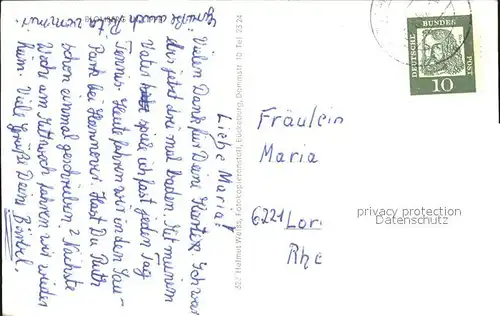 Liebe Maria!
Vielen Dank für Deine Karte. Ich war
bis jetzt drei mal baden. Mit meinem
Vater spiele ich fast jeden Tag
Tennis. Heute fahren wir in den Sau-
Park bei Hannover. Hast Du Ruth
schon einmal geschrieben? Nächste
Woche am Mittwoch fahren wir wieder
heim. Viele Grüße Deine Bärbel.
Grüße auch Rita
Helmut Weiss, Fotokopieranstalt, Bückeburg, Dammstr. 10 Tel. 23 24
DEUTSCHE
BUNDES
POST
10
Fräulein
Maria
6221 Lor
Rhe
privacy protection
Datenschutz